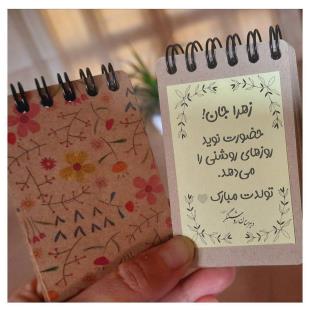 زهرا جان!
حضورت نوید
روزهای روشنی را
می‌دهد.
تولدت مبارک